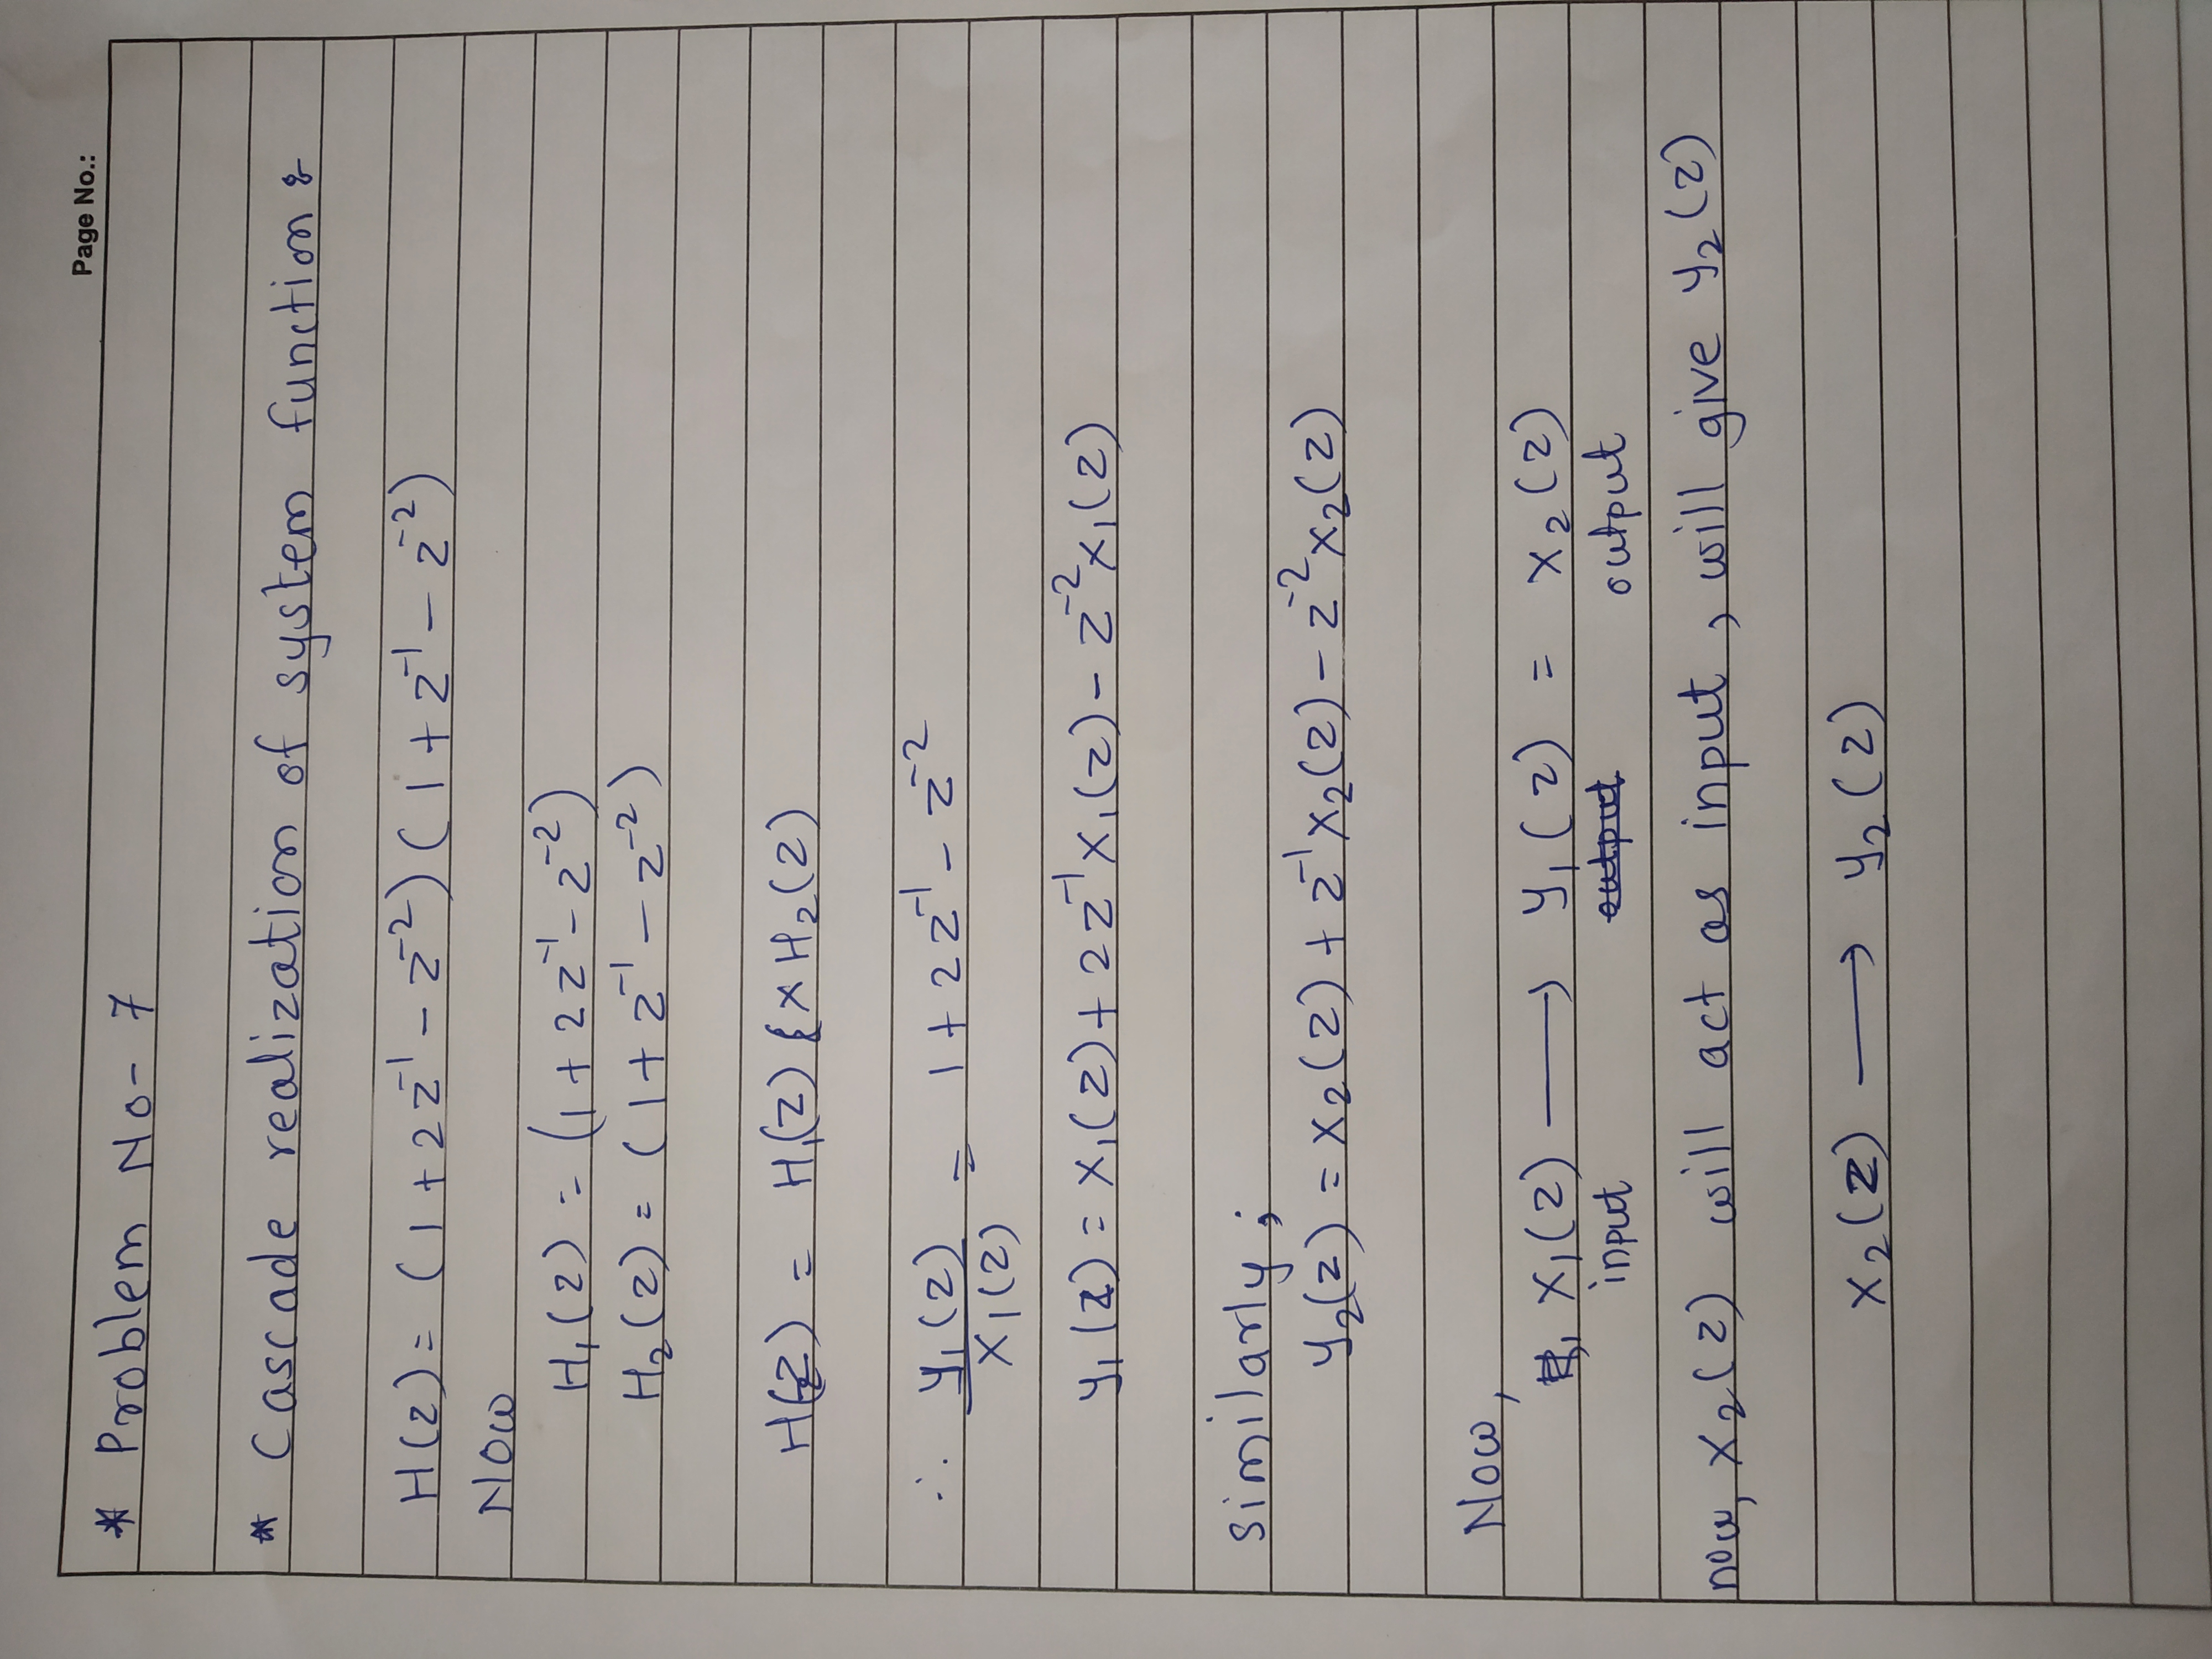 Page No.:
* Problem No- 7
* Cascade realization of system function :
H(z) = (1 + 2z⁻¹ - z⁻²) (1 + z⁻¹ - z⁻²)
Now
H₁(z) = (1 + 2z⁻¹ - z⁻²)
H₂(z) = (1 + z⁻¹ - z⁻²)
H(z) = H₁(z) × H₂(z)
∴ y₁(z) / x₁(z) = 1 + 2z⁻¹ - z⁻²
y₁(z) = x₁(z) + 2z⁻¹x₁(z) - z⁻²x₁(z)
similarly;
y₂(z) = x₂(z) + z⁻¹x₂(z) - z⁻²x₂(z)
Now,
x₁(z) ⟶ y₁(z) = x₂(z)
input output output
now, x₂(z) will act as input, will give y₂(z)
x₂(z) ⟶ y₂(z)